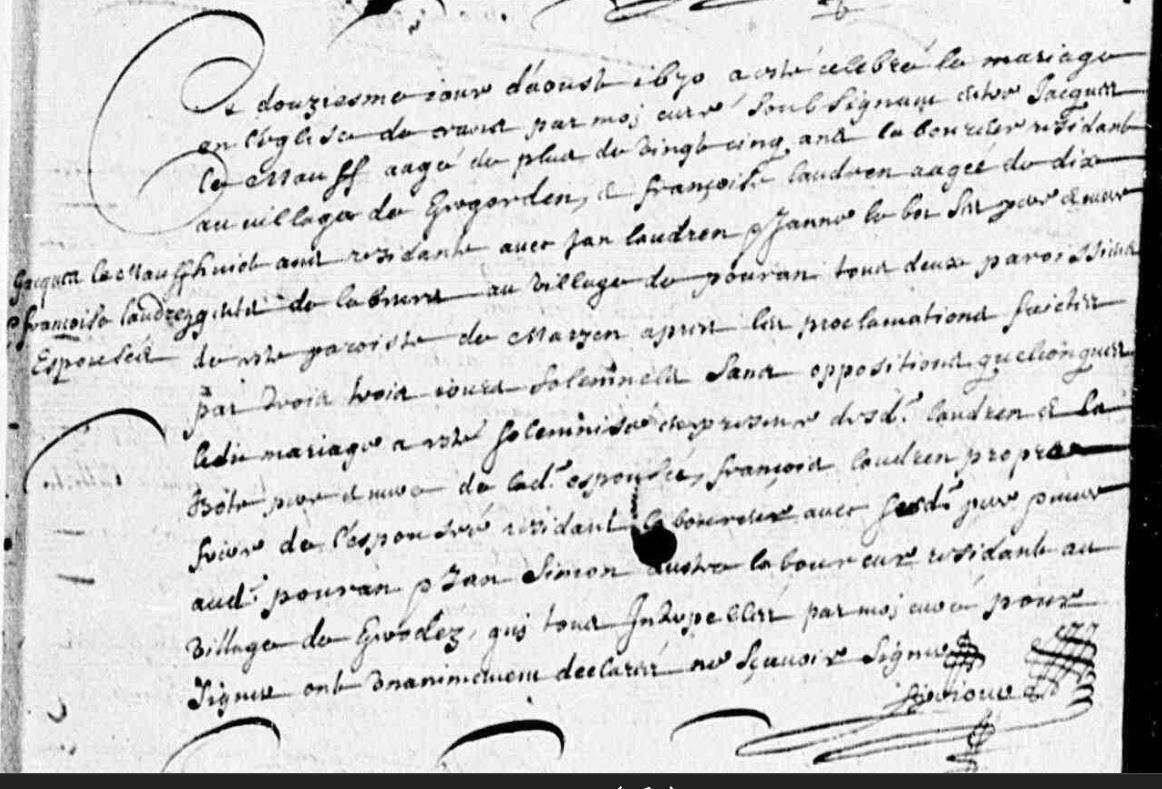 Ce douziesme jour d'aoust 1670 a esté celebré le mariage
en l'eglise de par moy curé soub signant entre Jacques
Le Mauff aagé de plus de vingt cinq ans laboureur residant
au village de Gregorden, et françoise laudren aageé de dix
huict ans residante avec Jan laudren et Janne le bot ses pere et mere
Jacques le Mauff
gents de labeure au village de pouran tous deux paroissiens
et françoise laudren
de ceste paroisse de Marzen apres les proclamations faictes
Espousés
par trois jours solemnels sans oppositions quelconques
ledit mariage a esté solemnisé en presence desd. laudren et le
Bot pere et mere de lad. espouseé, françois laudren propre
frere de l'espouseé residant laboureur avec sesd. pere et mere
aud. pouran et Jan Simon austre laboureur residante au
village de qui tous Interpellés par moy curé pour
signer ont unanimement declaré ne sçavoir signer